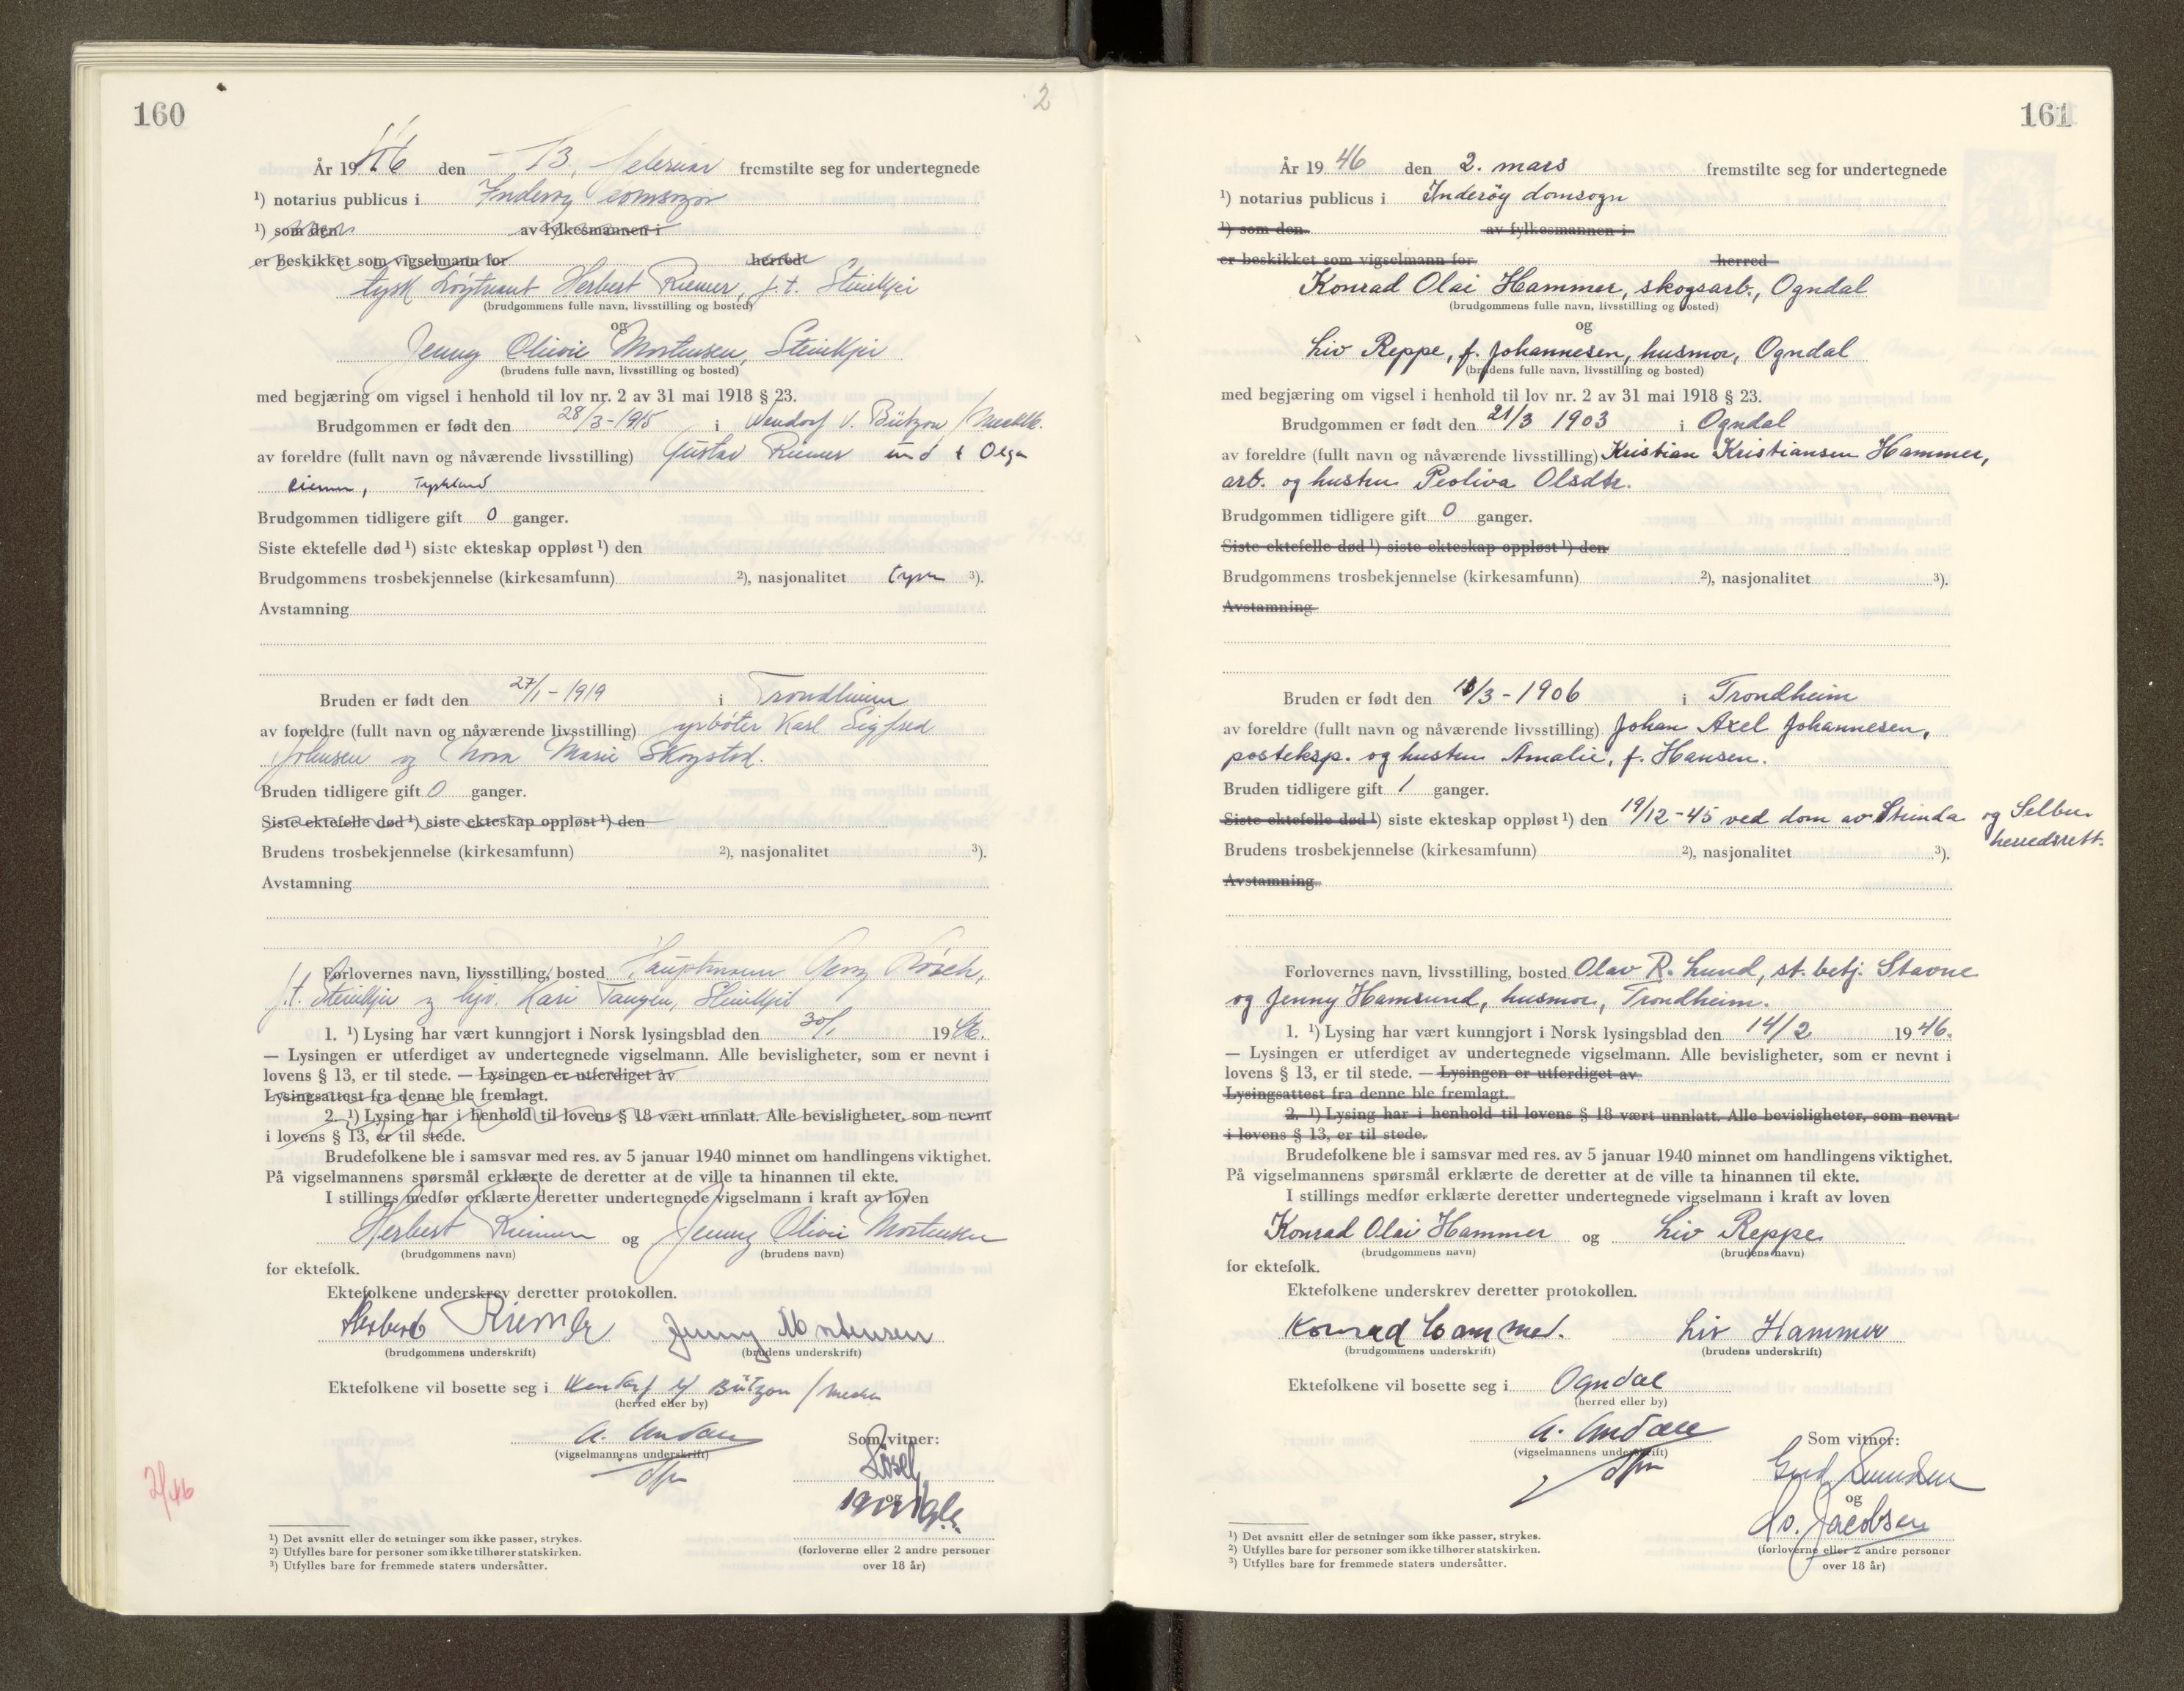 160
2
År 1946 den 13. februar fremstilte seg for undertegnede
¹) notarius publicus i Inderøy domsogn
¹) som den av fylkesmannen i
er beskikket som vigselmann for herred
tysk Løytnant Herbert Riemer, f.t. Steinkjer
(brudgommens fulle navn, livsstilling og bosted)
og
Jenny Olivie Mortensen, Steinkjer
(brudens fulle navn, livsstilling og bosted)
med begjæring om vigsel i henhold til lov nr. 2 av 31 mai 1918 § 23.
Brudgommen er født den 28/3-1915 i Wendorf v. Bützow / Mecklb.
av foreldre (fullt navn og nåværende livsstilling) Gustav Riemer und Olga
Riemer, Tyskland
Brudgommen tidligere gift 0 ganger.
Siste ektefelle død ¹) siste ekteskap oppløst ¹) den
Brudgommens trosbekjennelse (kirkesamfunn) ²), nasjonalitet tysk ³).
Avstamning
Bruden er født den 27/1-1919 i Trondheim
av foreldre (fullt navn og nåværende livsstilling) fyrbøter Karl Sigfred
Johnsen og Nora Marie Skogstad.
Bruden tidligere gift 0 ganger.
Siste ektefelle død ¹) siste ekteskap oppløst ¹) den
Brudens trosbekjennelse (kirkesamfunn) ²), nasjonalitet ³).
Avstamning
Forlovernes navn, livsstilling, bosted Hauptmann Georg
f.t. Steinkjer og Kari Tangen, Steinkjer
1. ¹) Lysing har vært kunngjort i Norsk lysingsblad den 30/1 1946.
— Lysingen er utferdiget av undertegnede vigselmann. Alle bevisligheter, som er nevnt i
lovens § 13, er til stede. — Lysingen er utferdiget av
Lysingsattest fra denne ble fremlagt.
2. ¹) Lysing har i henhold til lovens § 18 vært unnlatt. Alle bevisligheter, som nevnt
i lovens § 13, er til stede.
Brudefolkene ble i samsvar med res. av 5 januar 1940 minnet om handlingens viktighet.
På vigselmannens spørsmål erklærte de deretter at de ville ta hinannen til ekte.
I stillings medfør erklærte deretter undertegnede vigselmann i kraft av loven
Herbert Riemer og Jenny Olivie Mortensen
(brudgommens navn) (brudens navn)
for ektefolk.
Ektefolkene underskrev deretter protokollen.
Herbert Riemer Jenny Mortensen
(brudgommens underskrift) (brudens underskrift)
Ektefolkene vil bosette seg i Wendorf b/ Bützow / Meckl
(herred eller by)
A. Andall
(vigselmannens underskrift)
dfm
Som vitner:
og
(forloverne eller 2 andre personer
over 18 år)
2/46
¹) Det avsnitt eller de setninger som ikke passer, strykes.
²) Utfylles bare for personer som ikke tilhører statskirken.
³) Utfylles bare for fremmede staters undersåtter.
161
År 1946 den 2. mars fremstilte seg for undertegnede
¹) notarius publicus i Inderøy domsogn
¹) som den av fylkesmannen i
er beskikket som vigselmann for herred
Konrad Olai Hammer, skogsarb., Ogndal
(brudgommens fulle navn, livsstilling og bosted)
og
Liv Reppe, f. Johannesen, husmor, Ogndal
(brudens fulle navn, livsstilling og bosted)
med begjæring om vigsel i henhold til lov nr. 2 av 31 mai 1918 § 23.
Brudgommen er født den 21/3 1903 i Ogndal
av foreldre (fullt navn og nåværende livsstilling) Kristian Kristiansen Hammer,
arb. og hustru Peoliva Olsdtr.
Brudgommen tidligere gift 0 ganger.
Siste ektefelle død ¹) siste ekteskap oppløst ¹) den
Brudgommens trosbekjennelse (kirkesamfunn) ²), nasjonalitet ³).
Avstamning
Bruden er født den /3-1906 i Trondheim
av foreldre (fullt navn og nåværende livsstilling) Johan Axel Johannesen,
posteksp. og hustru Amalie, f. Hansen.
Bruden tidligere gift 1 ganger.
Siste ektefelle død ¹) siste ekteskap oppløst ¹) den 19/12-45 ved dom av Strinda og Selbu
herredsrett.
Brudens trosbekjennelse (kirkesamfunn) ²), nasjonalitet ³).
Avstamning
Forlovernes navn, livsstilling, bosted Olav R. Lund, st. betj. Stavne
og Jenny Hamsund, husmor, Trondheim.
1. ¹) Lysing har vært kunngjort i Norsk lysingsblad den 14/2 1946.
— Lysingen er utferdiget av undertegnede vigselmann. Alle bevisligheter, som er nevnt i
lovens § 13, er til stede. — Lysingen er utferdiget av
Lysingsattest fra denne ble fremlagt.
2. ¹) Lysing har i henhold til lovens § 18 vært unnlatt. Alle bevisligheter, som nevnt
i lovens § 13, er til stede.
Brudefolkene ble i samsvar med res. av 5 januar 1940 minnet om handlingens viktighet.
På vigselmannens spørsmål erklærte de deretter at de ville ta hinannen til ekte.
I stillings medfør erklærte deretter undertegnede vigselmann i kraft av loven
Konrad Olai Hammer og Liv Reppe
(brudgommens navn) (brudens navn)
for ektefolk.
Ektefolkene underskrev deretter protokollen.
Konrad Hammer. Liv Hammer
(brudgommens underskrift) (brudens underskrift)
Ektefolkene vil bosette seg i Ogndal
(herred eller by)
A. Andall
(vigselmannens underskrift)
dfm
Som vitner:
og
Jacobsen
(forloverne eller 2 andre personer
over 18 år)
¹) Det avsnitt eller de setninger som ikke passer, strykes.
²) Utfylles bare for personer som ikke tilhører statskirken.
³) Utfylles bare for fremmede staters undersåtter.